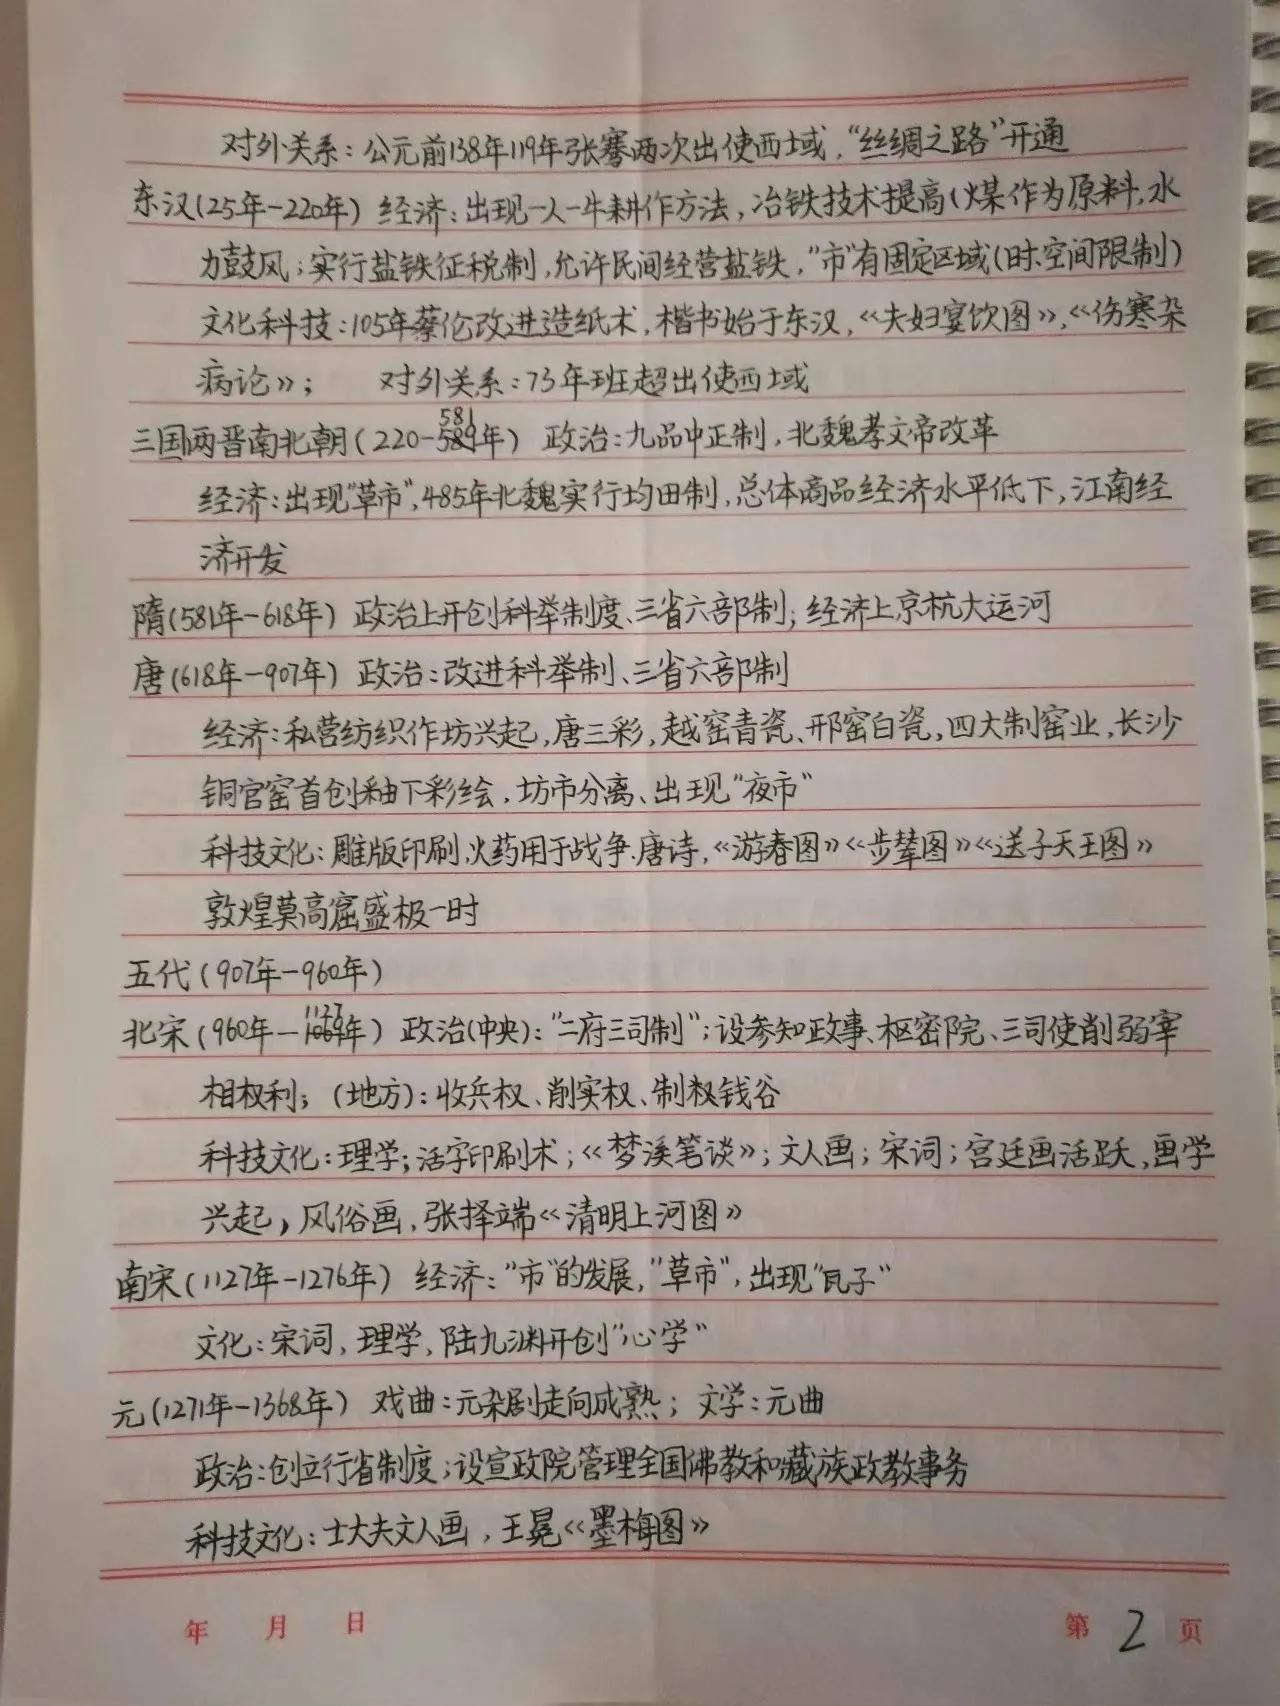 对外关系：公元前138年119年张骞两次出使西域，“丝绸之路”开通
东汉(25年-220年) 经济：出现一人一牛耕作方法，冶铁技术提高(煤作为原料，水
力鼓风；实行盐铁征税制，允许民间经营盐铁，“市”有固定区域(时、空间限制)
文化科技：105年蔡伦改进造纸术，楷书始于东汉，《夫妇宴饮图》，《伤寒杂
病论》； 对外关系：73年班超出使西域
581
三国两晋南北朝(220-589年) 政治：九品中正制，北魏孝文帝改革
经济：出现“草市”，485年北魏实行均田制，总体商品经济水平低下，江南经
济开发
隋(581年-618年) 政治上开创科举制度、三省六部制；经济上京杭大运河
唐(618年-907年) 政治：改进科举制、三省六部制
经济：私营纺织作坊兴起，唐三彩，越窑青瓷、邢窑白瓷，四大制窑业，长沙
铜官窑首创釉下彩绘，坊市分离、出现“夜市”
科技文化：雕版印刷，火药用于战争，唐诗，《游春图》《步辇图》《送子天王图》
敦煌莫高窟盛极一时
五代(907年-960年)
1127
北宋(960年-1069年) 政治(中央)：“二府三司制”；设参知政事、枢密院、三司使削弱宰
相权利；(地方)：收兵权、削实权、制权钱谷
科技文化：理学；活字印刷术；《梦溪笔谈》；文人画；宋词；宫廷画活跃，画学
兴起，风俗画，张择端《清明上河图》
南宋(1127年-1276年) 经济：“市”的发展，“草市”，出现“瓦子”
文化：宋词，理学，陆九渊开创“心学”
元(1271年-1368年) 戏曲：元杂剧走向成熟； 文学：元曲
政治：创立行省制度；设宣政院管理全国佛教和藏族政教事务
科技文化：士大夫文人画，王冕《墨梅图》
年 月 日 第 2 页